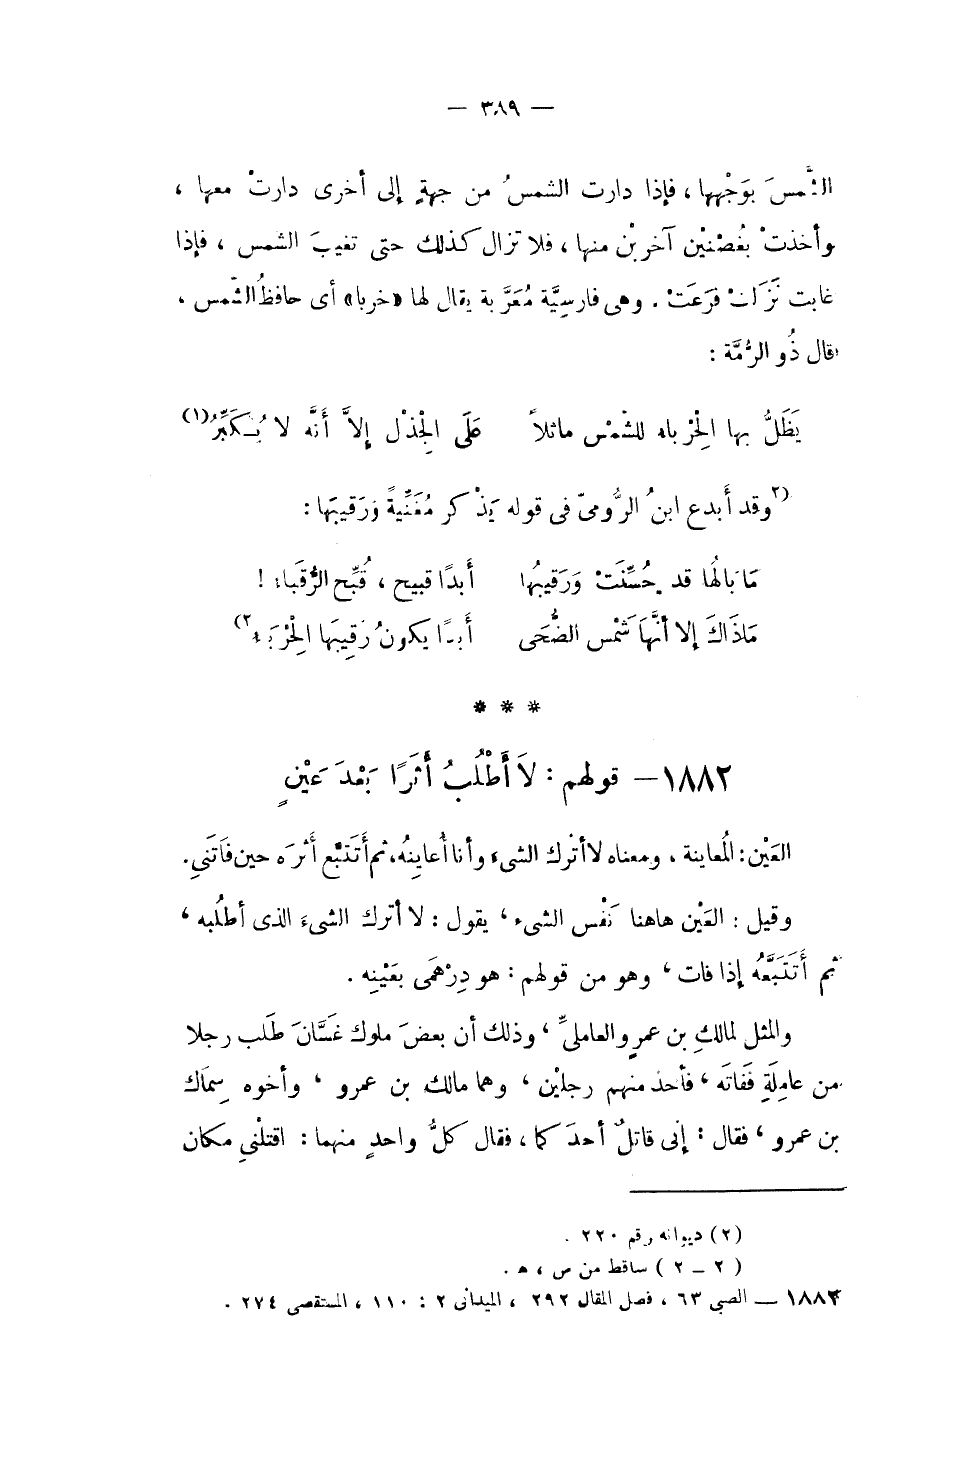 — ٣٨٩ —
الشَّمسَ بوَجْهِها ، فإذا دارت الشمسُ من جهةٍ إلى أخرى دارتْ معها ،
وأخذتْ بغُصْنَيْن آخريْن منها ، فلا تزال كذلك حتى تغيبَ الشمس ، فإذا
غابت نَزَلتْ فرَعَتْ . وهى فارسيَّة مُعَرَّبة يقال لها «خربا» أى حافظُ الشَّمس ،
قال ذُو الرُّمَّة :
يَظَلُّ بها الحِرْباء للشمْس ماثلاً عَلَى الجِذْل إلاَّ أنَّه لا يُكَبِّرُ(١)
(٢وقد أبدع ابنُ الرُّومىّ فى قوله يَذْكر مُغَنِّيةً ورَقيبَها :
مَا بَالُها قد حُسِّنَتْ وَرَقيبُها أبدًا قبيح ، قُبِّح الرُّقبَاء !
مَاذَاكَ إلا أنَّهَا شَمْس الضُّحَى أبدًا يكونُ رَقِيبَها الحِرْبَاء٢)
* * *
١٨٨٢ — قولهم : لاَ أَطْلُبُ أَثَرًا بَعْدَ عَيْنٍ
العَيْن : المُعاينة ، ومعناه لا أترك الشىء وأنا أُعاينُه، ثم أَتَتَبَّع أَثرَه حين فَاتَنِي.
وقيل : العَيْن هاهنا نَفْس الشىء ، يقول : لا أترك الشىءَ الذى أطلُبه ،
ثم أَتَتَبَّعُه إذا فات ، وهو من قولهم : هو دِرْهَمَى بعَيْنِه .
والمثل لمالكِ بن عمرٍو العاملىِّ ، وذلك أن بعضَ ملوك غَسَّانَ طَلب رجلا
من عامِلَةِ فَفَاتَه ، فأخذ منهم رجليْن ، وهما مالك بن عمرو ، وأخوه سِمَاك
بن عمرو ، فقال : إنى قاتلٌ أحدَكما ، فقال كلُّ واحدٍ منهما : اقتلْنِي مكان
(٢) ديوانه رقم ٢٢٠ .
( ٢ — ٢ ) ساقط من ص ، هـ .
١٨٨٢ — الضبى ٦٣ ، فصل المقال ٢٩٢ ، الميدانى ٢ : ١١٠ ، المستقصى ٢٧٤ .